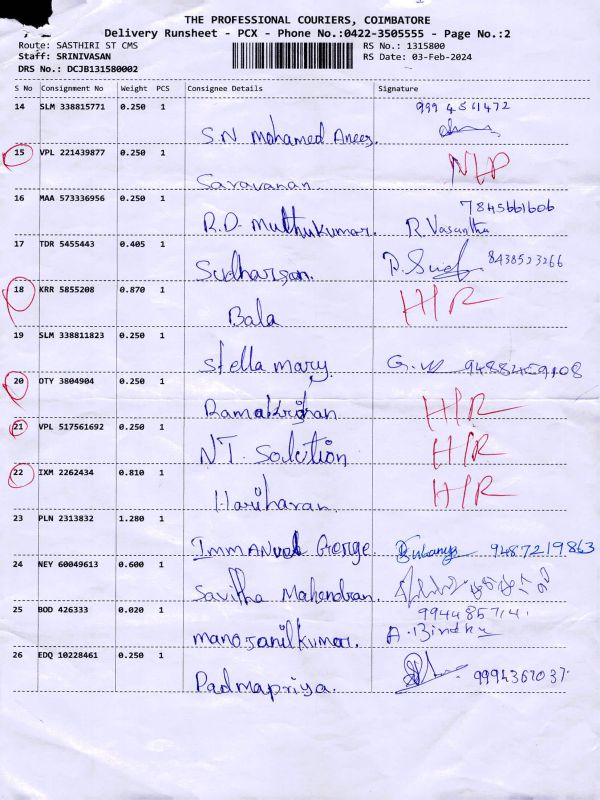 THE PROFESSIONAL COURIERS, COIMBATORE
Delivery Runsheet - PCX - Phone No.:0422-3505555 - Page No.:2
Route: SASTHIRI ST CMS RS No.: 1315800
Staff: SRINIVASAN RS Date: 03-Feb-2024
DRS No.: DCJB131580002
S No Consignment No Weight PCS Consignee Details Signature
14 SLM 338815771 0.250 1
S.N Mohamed Anees.
15 VPL 221439877 0.250 1 N/P
Saravanan
16 MAA 573336956 0.250 1 7845661606
R.D. Muthukumar. R. Vasantha
17 TDR 5455443 0.405 1
Sudharsan. 8438523266
18 KRR 5855208 0.870 1 H/R
Bala
19 SLM 338811823 0.250 1
Stella mary
20 OTY 3804904 0.250 1 H/R
Ramakrishan
21 VPL 517561692 0.250 1 H/R
NT. Solution
22 IXM 2262434 0.810 1 H/R
Hariharan.
23 PLN 2313832 1.280 1
Immanuel George.
24 NEY 60049613 0.600 1
Savitha Mahendran.
25 BOD 426333 0.020 1
manojanilkumar. A. Bindhu
26 EDQ 10228461 0.250 1
Padmapriya.